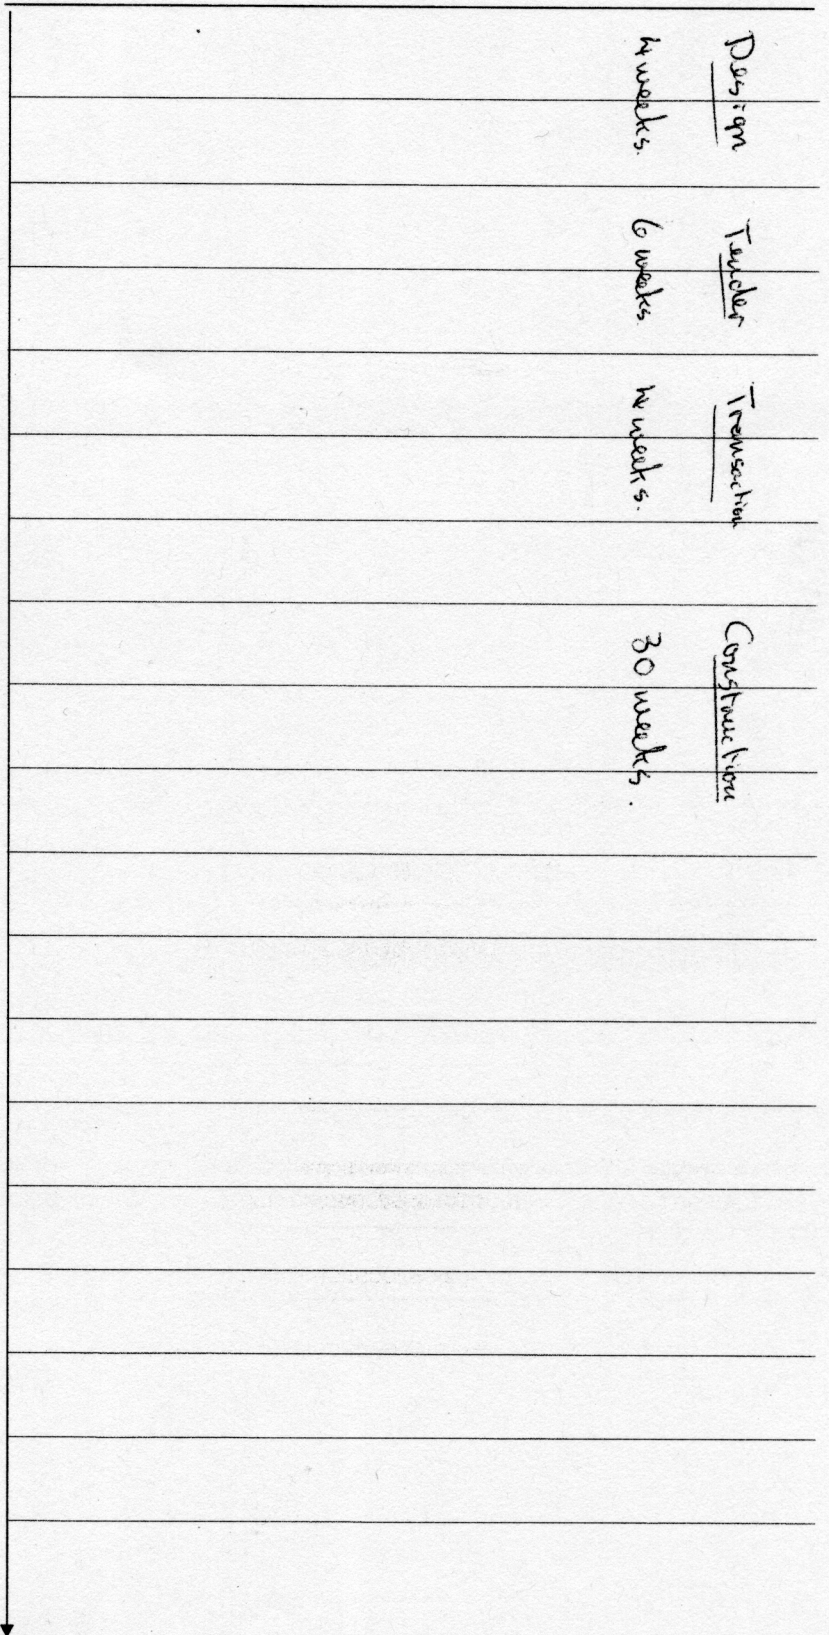 Design Tender Transaction Construction
4 weeks. 6 weeks. 4 weeks. 30 weeks.